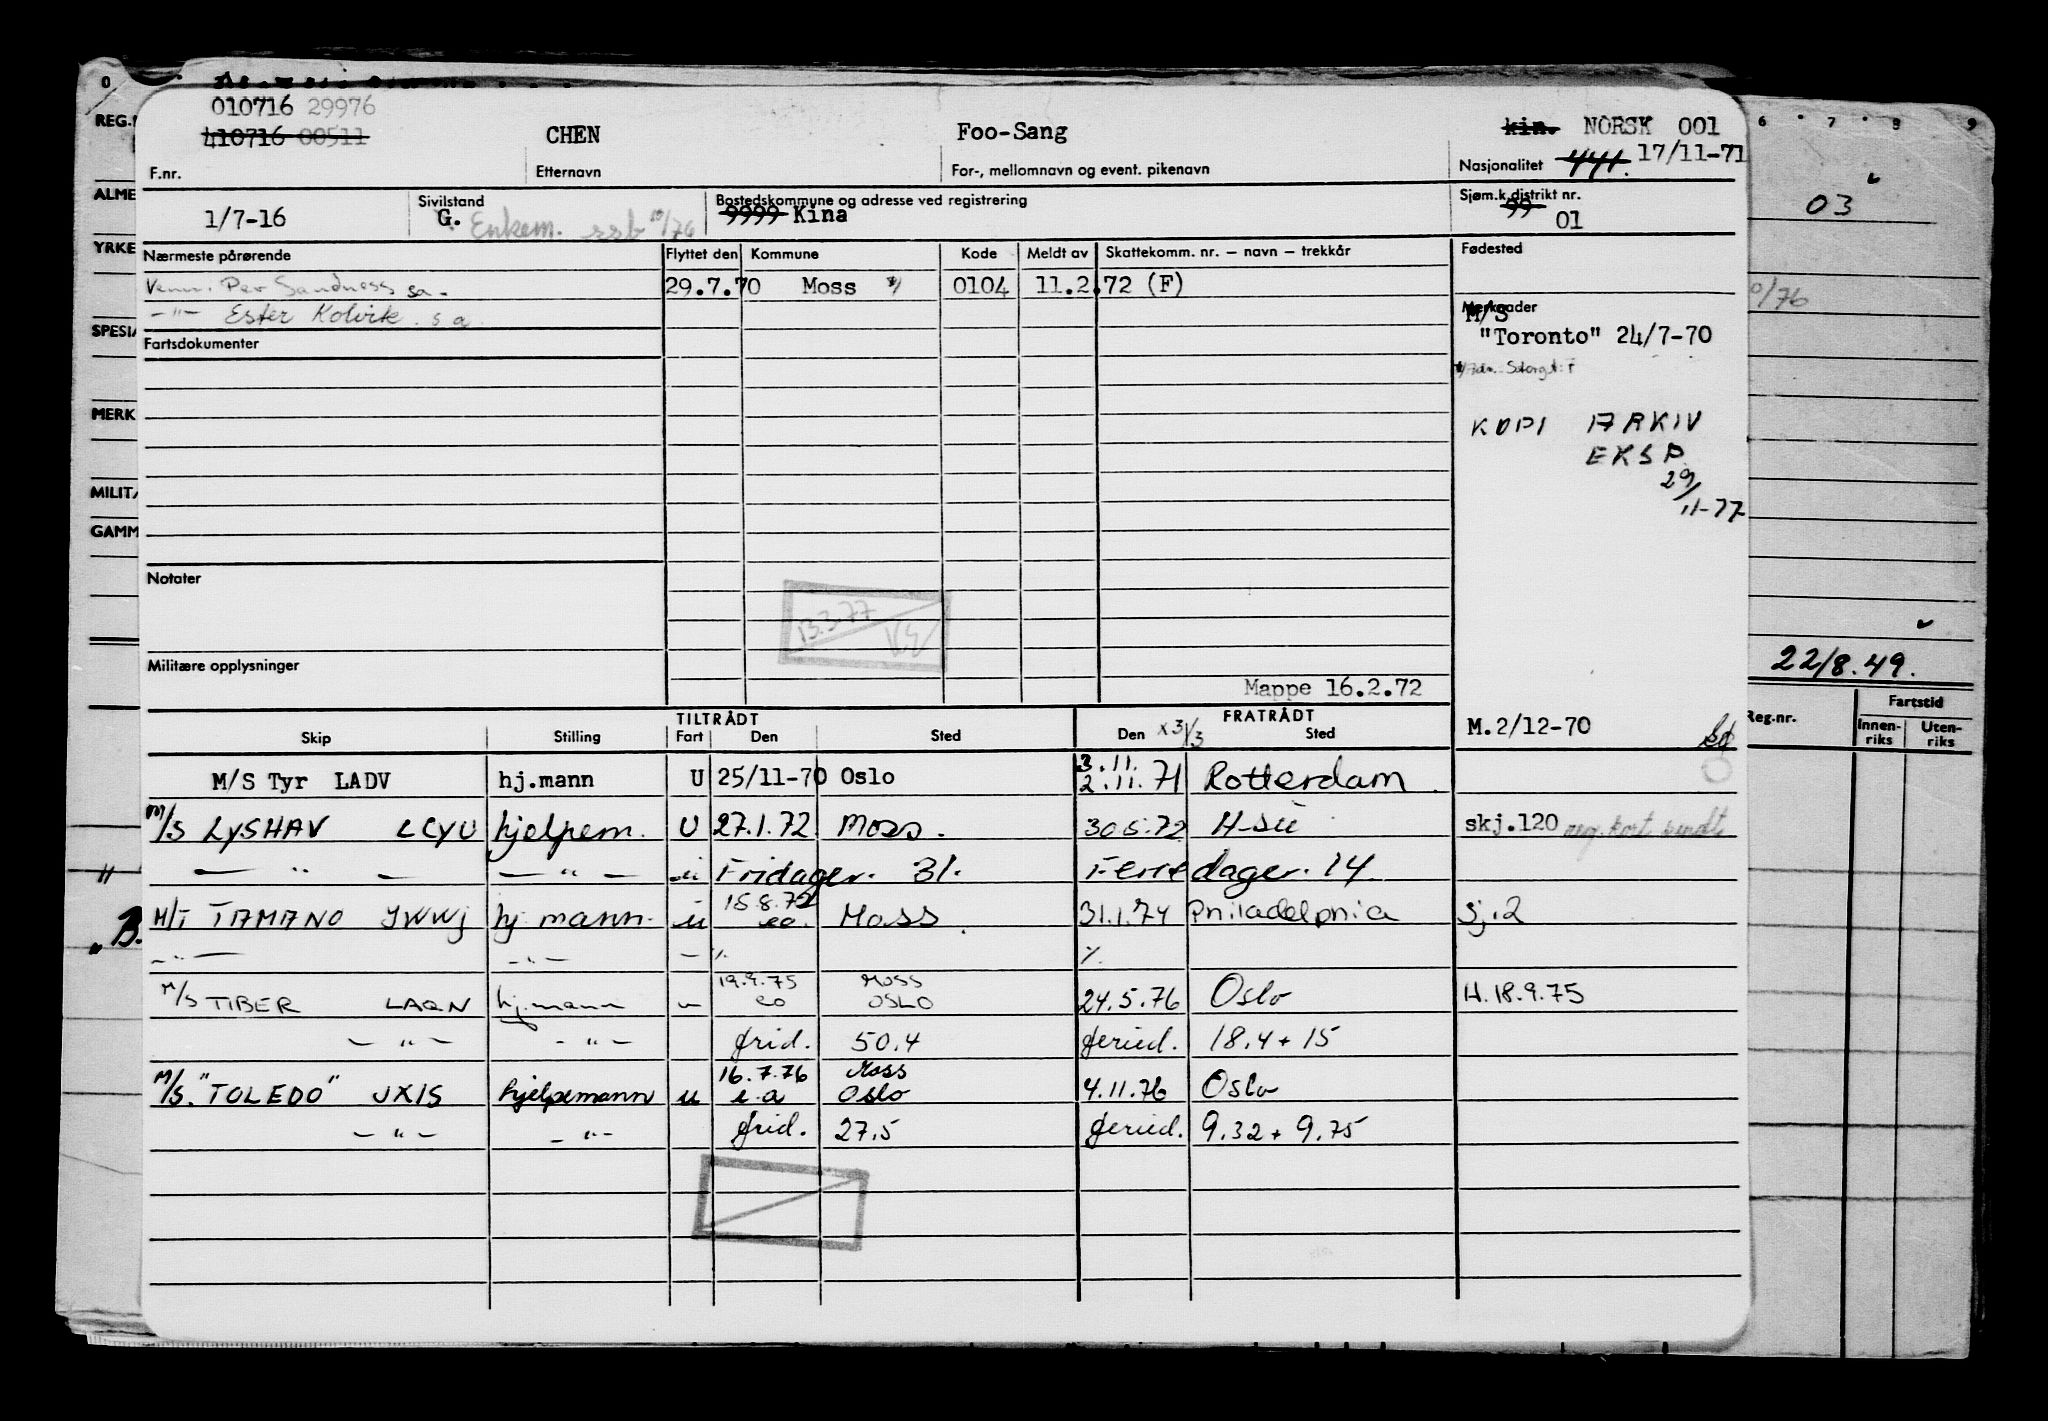 010716 29976
410716 00511 CHEN Foo-Sang kin. NORSK 001
F.nr. Etternavn For-, mellomnavn og event. pikenavn Nasjonalitet 441. 17/11-71
1/7-16 Sivilstand G. Enkem. ssb 10/76 Bostedskommune og adresse ved registrering 9999 Kina Sjøm.k.distrikt nr. 99 01
Nærmeste pårørende Flyttet den Kommune Kode Meldt av Skattekomm. nr. – navn – trekkår Fødested
Venn. Per Sandness sa. 29.7.70 Moss 0104 11.2.72 (F)
— " — Ester Kolvik. s a. Merknader M/S
Fartsdokumenter "Toronto" 24/7-70
KOPI ARKIV
EKSP
29/11-77
Notater
13.3.77
Militære opplysninger
Mappe 16.2.72
TILTRÅDT FRATRÅDT M.2/12-70
Skip Stilling Fart Den Sted Den x 31/3 Sted
3.11.
M/S Tyr LADV hj.mann U 25/11-70 Oslo 2.11.71 Rotterdam
M/S LYSHAV LCYU hjelpem. U 27.1.72 Moss. 30.5.72 H-sü skj.120 reg.kort sendt
— " — — " — u Fridager. 31. Feriedager. 14.
15.8.72
M/T TAMANO JWWJ hj mann. u eo. Moss 31.1.74 Philadelphia Sj.2
— " — — " — — ٪ ٪
19.9.75 MOSS
M/S TIBER LAQN hj.mann u eo OSLO 24.5.76 Oslo H.18.9.75
— " — — " — frid. 50.4 feried. 18.4 + 15
16.7.76 Moss
M/S. "TOLEDO" JXIS hjelpemann u e.a Oslo 4.11.76 Oslo
— " — — " — frid. 27.5 feried. 9.32 + 9.75
0
REG.
ALME
YRKE
SPESIA
MERK
MILITÆ
GAMM
"
"B.
6 7 8 9
03
0/76
22/8.49.
Reg.nr. Fartstid
Innen-riks Uten-riks